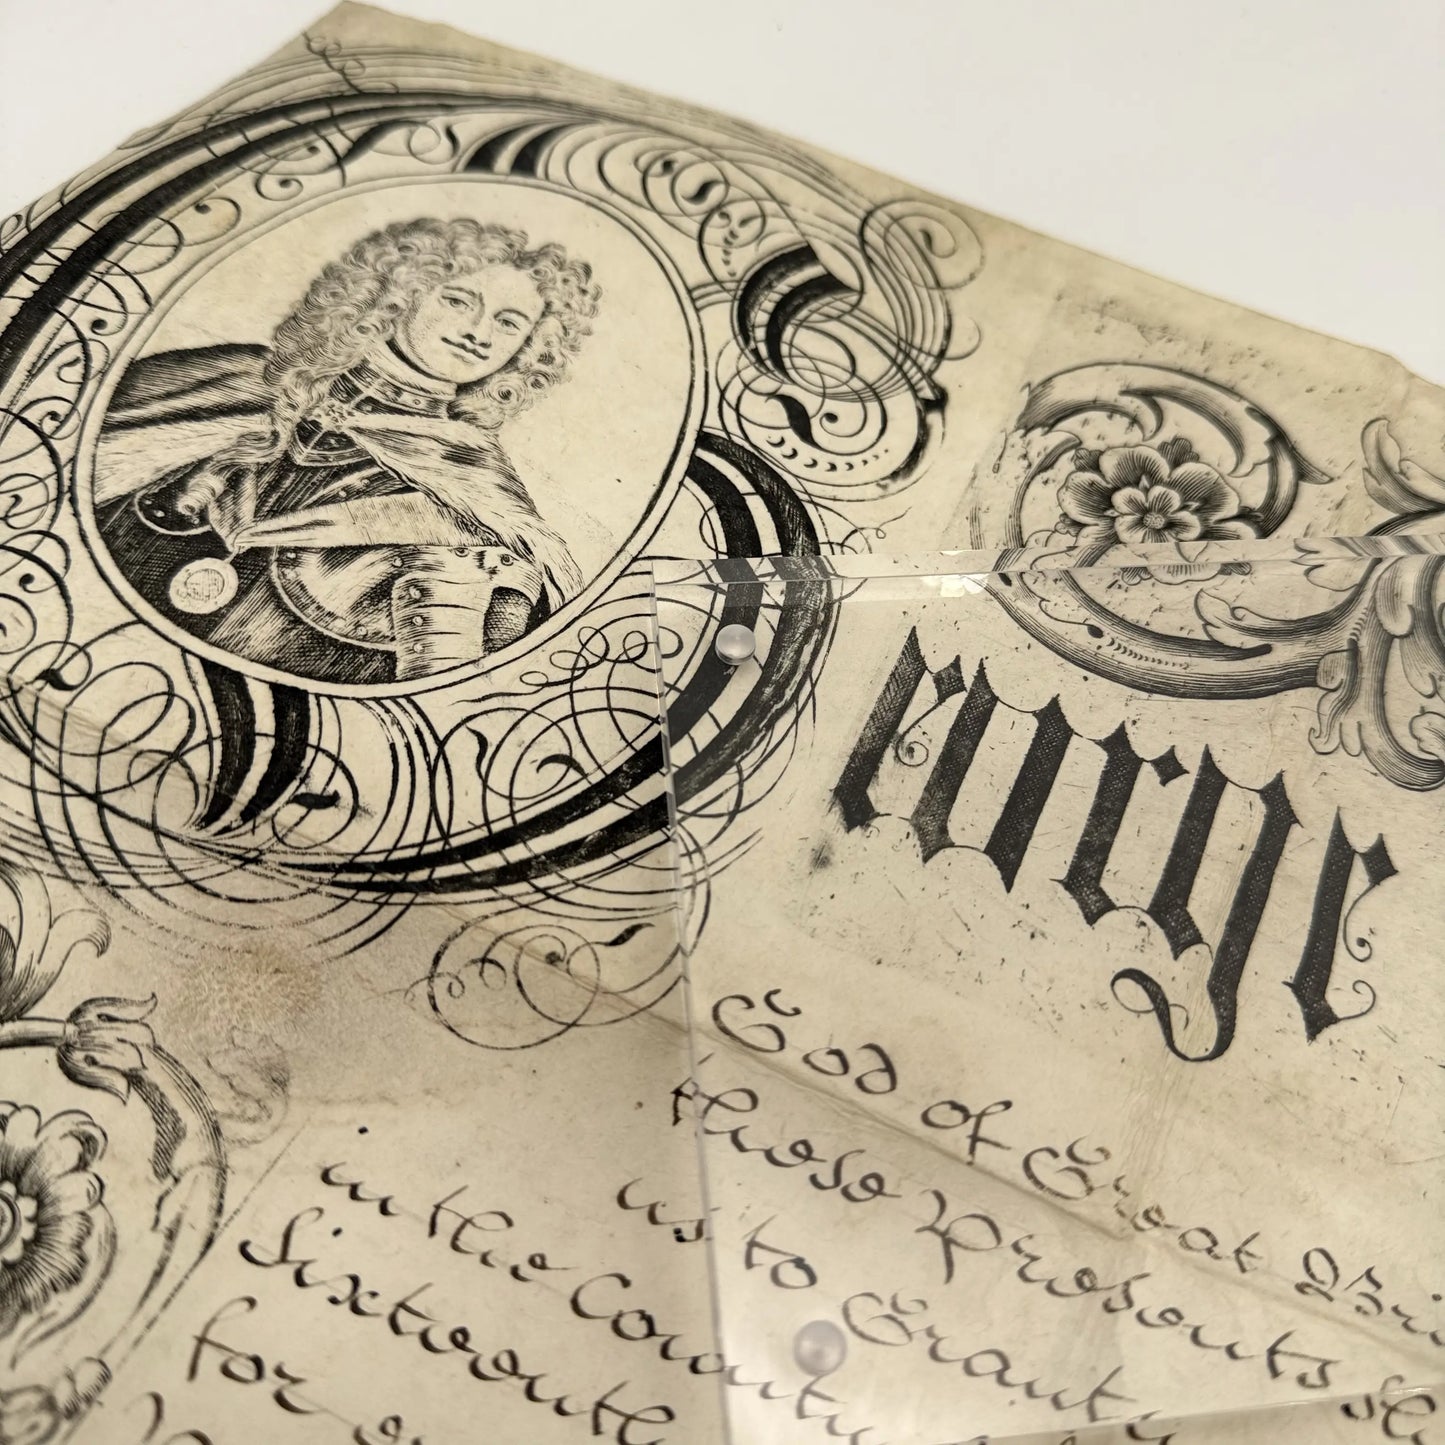 George
God of Great Bri
these Presents sh
us to Grant
in the County
Sixteenth
for